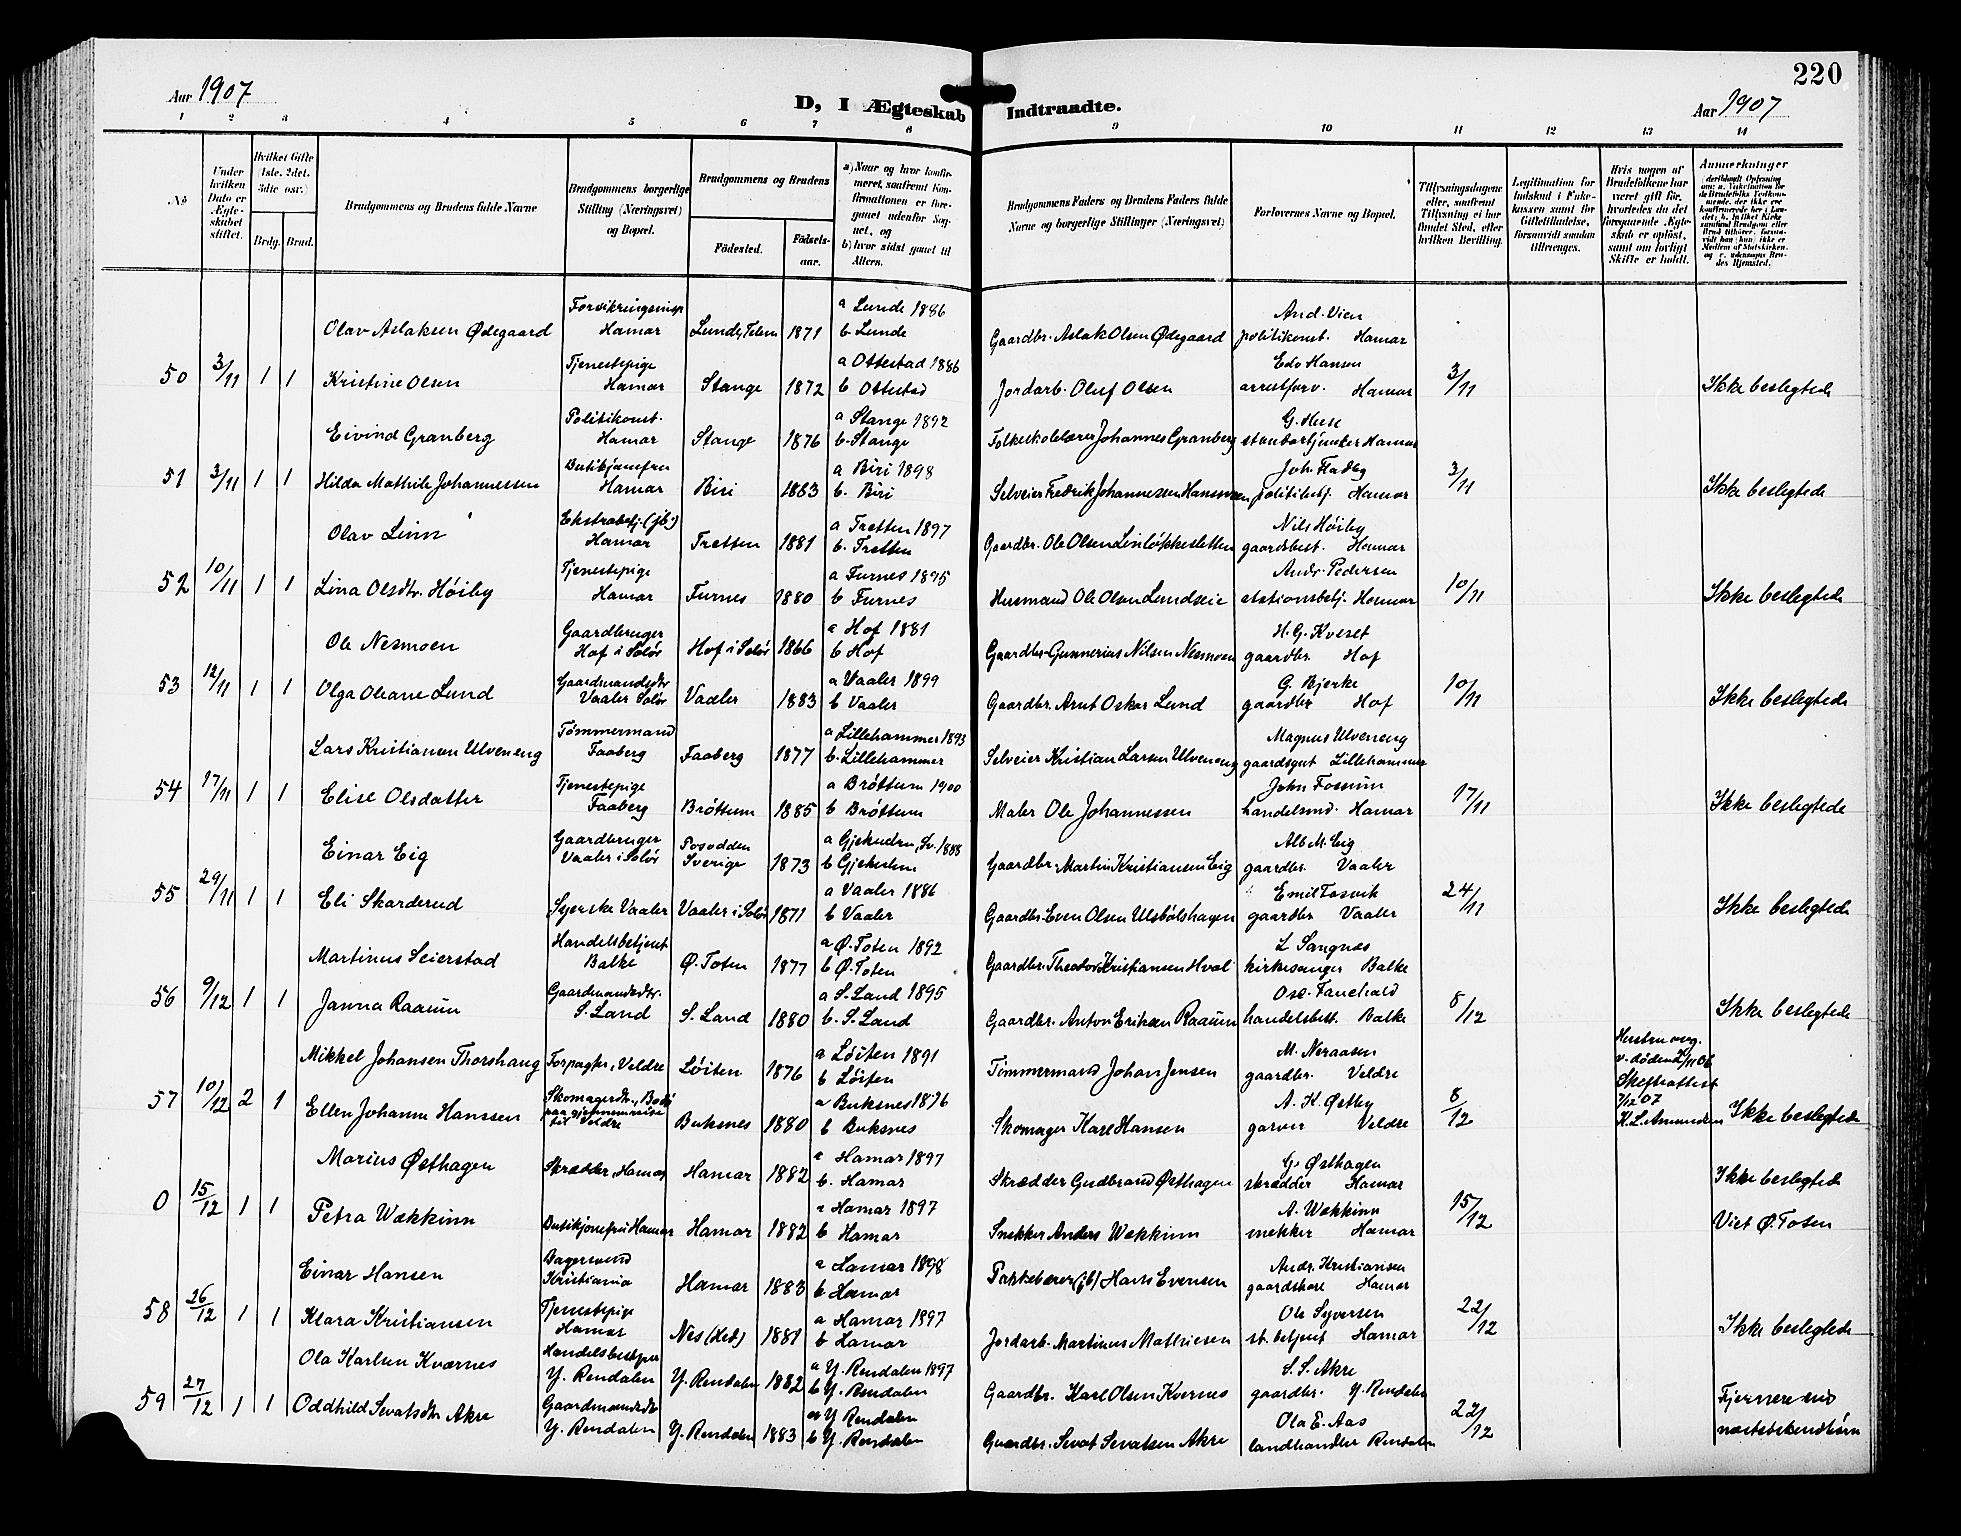 220
Aar 1907
D, I Ægteskab Indtraadte.
Aar 1907
1 2 3 4 5 6 7 8 9 10 11 12 13 14
No
Under hvilken Dato er Ægteskabet stiftet.
Hvilket Gifte (1ste, 2det, 3die osv.)
Brdg. Brud.
Brudgommens og Brudens fulde Navne
Brudgommens borgerlige Stilling (Næringsvei) og Bopæl.
Brudgommens og Brudens
Fødested.
Fødselsaar.
a) Naar og hvor konfirmeret, saafremt Konfirmationen er foregaaet udenfor Sognet, og
b) hvor sidst gaaet til Alters.
Brudgommens Faders og Brudens Faders fulde Navne og borgerlige Stillinger (Næringsvei)
Forlovernes Navne og Bopæl.
Tillysningsdagene eller, saafremt Tillysning ei har fundet Sted, efter hvilken Bevilling.
Legitimation for Indskud i Enkekassen samt for Giftetilladelse, forsaavidt saadan tiltrænges.
Hvis nogen af Brudefolkene har været gift før, hvorledes da det foregaaende Ægteskab er opløst, samt om lovligt Skifte er holdt.
Anmerkninger
Olav Aslaksen Ødegaard Forsikringsinsp Hamar Lunde, Telem 1871 a Lunde 1886 b Lunde Gaardbr. Aslak Olsen Ødegaard And. Vien politikonst. Hamar
50 3/11 1 1 Kristine Olsen Tjenestepige Hamar Stange 1872 a Ottestad 1886 b Ottestad Jordarb. Oluf Olsen Edv Hansen arrestforv. Hamar 3/11 Ikke beslegtede
Eivind Granberg Politikonst. Hamar Stange 1876 a Stange 1892 b. Stange Folkeskolelærer Johannes Granberg G. Huse Hamar
51 3/11 1 1 Hilda Mathile Johannessen Butikjomfru Hamar Biri 1883 a Biri 1898 b. Biri Selveier Fredrik Johannessen Joh. Fladby politibetj. Hamar 3/11 Ikke beslegtede
Olav Linn Ekstrabetj. (jb.) Hamar Tretten 1881 a Tretten 1897 b. Tretten Gaardbr. Ole Olsen Linløkkesletten Nils Høiby gaardsbest. Hamar
52 10/11 1 1 Lina Olsdtr. Høiby Tjenestepige Hamar Furnes 1880 a Furnes 1895 b Furnes Husmand Ole Olsen Lundseie Andr. Pedersen stationsbetj. Hamar 10/11 Ikke beslegtede
Ole Nesmoen Gaardbruger Hof i Solør Hof i Solør 1866 a Hof 1881 b Hof Gaardbr. Gunnerius Nilsen Nesmoen H. G. Kveset gaardbr. Hof
53 12/11 1 1 Olga Oliane Lund Gaardmandsdtr Vaaler Solør Vaaler 1883 a Vaaler 1899 b Vaaler Gaardbr. Arnt Oskar Lund G. Bjerke gaardbr Hof 10/11 Ikke beslegtede
Lars Kristiansen Ulveneng Tømmermand Faaberg Faaberg 1877 a Lillehammer 1893 b. Lillehammer Selveier Kristian Larsen Ulveneng Magnus Ulveneng gaardsgut Lillehammer
54 17/11 1 1 Elise Olsdatter Tjenestepige Faaberg Brøttum 1885 a Brøttum 1900 b Brøttum Maler Ole Johannessen John Fossum handelsmd. Hamar 17/11 Ikke beslegtede
Einar Eig Gaardbruger Vaaler i Solør Sverige 1873 a Sv. 1888 b Gaardbr. Martin Kristiansen Eig Alb. M. Eig gaardbr. Vaaler
55 29/11 1 1 Eli Skarderud Syerske Vaaler Vaaler i Solør 1871 a Vaaler 1886 b Vaaler Gaardbr. Even Olsen Ulsbølshagen Emil Tosvik gaardbr Vaaler 24/11 Ikke beslegtede
Martinus Seierstad Handelsbetjent Balke Ø. Toten 1877 a Ø. Toten 1892 b Ø. Toten Gaardbr. Theodor Kristiansen Hval L Sangnæs kirkesanger Balke
56 9/12 1 1 Janna Raaum Gaardmandsdtr. S. Land S. Land 1880 a S. Land 1895 b. S. Land Gaardbr. Anton Eriksen Raaum Osc. Fauchald handelsbest. Balke 8/12 Ikke beslegtede
Mikkel Johansen Thorshaug Forpagter, Veldre Løiten 1876 a Løiten 1891 b Løiten Tømmermand Johan Jensen M. Neraasen gaardbr. Veldre
57 10/12 2 1 Ellen Johanne Hanssen Skomagerdtr., Bodø paa gjennemreise til Veldre Buksnes 1880 a Buksnes 1896 b Buksnes Skomager Karl Hansen A. K. Østby garver Veldre 8/12 Skifteattest 7/12 07 K. L. Amundsen Ikke beslegtede
Marius Østhagen Skrædder, Hamar Hamar 1882 a Hamar 1897 b. Hamar Skrædder Gudbrand Østhagen G. Østhagen skrædder Hamar Ikke beslegtede
0 15/12 1 1 Petra Wækkinn Butikjomfru Hamar Hamar 1882 a Hamar 1897 b Hamar Snekker Anders Wækkinn A. Wækkinn snekker Hamar 15/12 Viet Ø. Toten
Einar Hansen Bagersvend Kristiania Hamar 1883 a Hamar 1898 b Hamar Pakkebærer (jb) Hans Evensen Andr. Kristiansen Hamar
58 26/12 1 1 Klara Kristiansen Tjenestepige Hamar Nes (Hed) 1881 a Hamar 1897 b Hamar Jordarb. Martinus Mathiesen Ole Syversen st. betjent Hamar 22/12 Ikke beslegtede
Ola Karlsen Kværnes Handelsbestyrer Y. Rendalen Y. Rendalen 1882 a Y. Rendalen 1897 b Y. Rendalen Gaardbr. Karl Olsen Kvernes S. S. Akre gaardbr. Y. Rendalen
59 27/12 1 1 Oddhild Sevatsdtr Akre Gaardmandsdtr Y. Rendalen Y. Rendalen 1883 a Y Rendalen b Y. Rendalen Gaardbr. Sevat Sevatsen Akre Ola E. Aas landhandler Rendalen 22/12 Fjernere end næstsøskendebørn